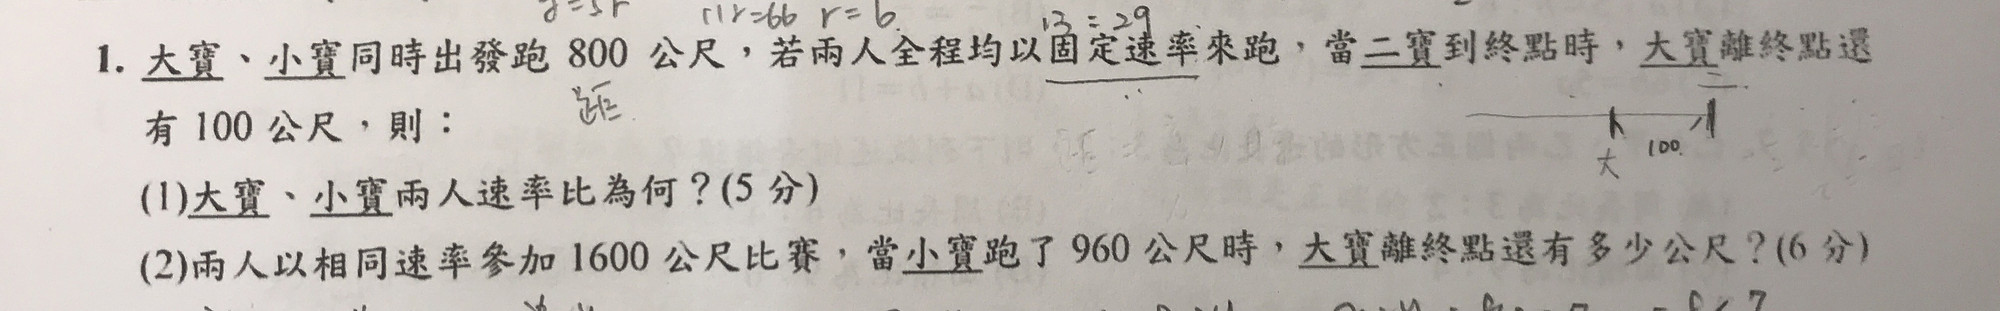 11r=66 r=6
13:29
1. 大寶、小寶同時出發跑 800 公尺，若兩人全程均以固定速率來跑，當二寶到終點時，大寶離終點還
二
距
有 100 公尺，則：
大 100
(1)大寶、小寶兩人速率比為何？(5 分)
(2)兩人以相同速率參加 1600 公尺比賽，當小寶跑了 960 公尺時，大寶離終點還有多少公尺？(6 分)